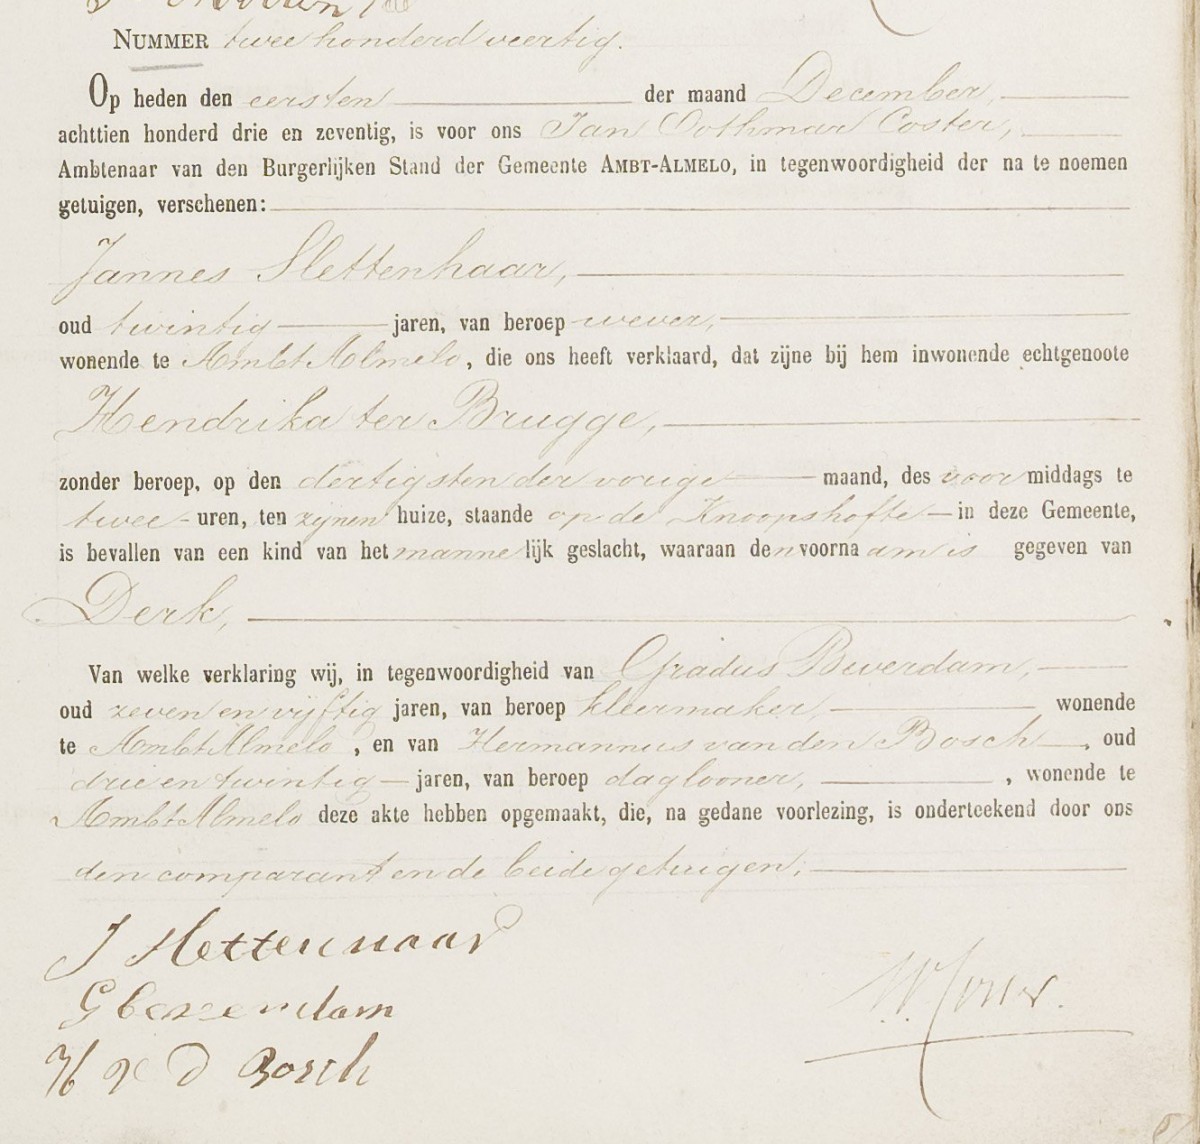 NUMMER twee honderd veertig.
Op heden den eersten der maand December,
achttien honderd drie en zeventig, is voor ons Jan Oothmar Coster,
Ambtenaar van den Burgerlijken Stand der Gemeente AMBT-ALMELO, in tegenwoordigheid der na te noemen
getuigen, verschenen:
Jannes Slettenhaar,
oud twintig jaren, van beroep wever,
wonende te Ambt Almelo, die ons heeft verklaard, dat zijne bij hem inwonende echtgenoote
Hendrika ter Brugge,
zonder beroep, op den dertigsten der vorige maand, des voormiddags te
twee uren, ten zijnen huize, staande op de Knoopshofte in deze Gemeente,
is bevallen van een kind van het mannelijk geslacht, waaraan den voornaam is gegeven van
Derk,
Van welke verklaring wij, in tegenwoordigheid van Gradus Beverdam,
oud zeven en vijftig jaren, van beroep kleermaker, wonende
te Ambt Almelo, en van Hermannus van den Bosch, oud
drie en twintig jaren, van beroep daglooner, , wonende te
Ambt Almelo deze akte hebben opgemaakt, die, na gedane voorlezing, is onderteekend door ons
den comparant en de beide getuigen,
J Slettenhaar
G beverdam
H v d Bosch
Coster.